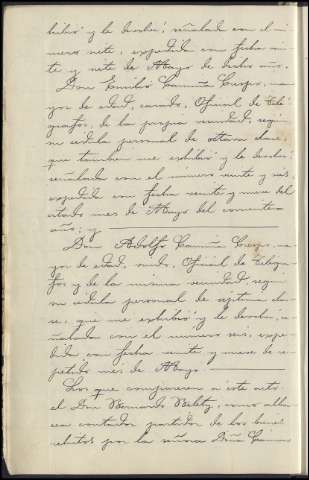 hibió y le devolví, señalada con el nú-
mero siete, expedida con fecha vein-
te y siete de Mayo de dicho año.
Don Emilio Camuña Crespo, ma-
yor de edad, casado, Oficial de Telé-
grafos, de la propia vecindad, según
su cédula personal de octava clase,
que tambien me exhibió y le devolví,
señalada con el número veinte y seis,
expedida con fecha veinte y nueve del
citado mes de Mayo del corriente
año; y
Don Adolfo Camuña Crespo, ma-
yor de edad, viudo, Oficial de Telegra-
fos y de la misma vecindad según
su cédula personal de séptima cla-
se, que me exhibió y le devolví, se-
ñalada con el número seis, expe-
dida con fecha veinte y nueve de re-
petido mes de Mayo.
Los que comparecen á este acto:
el Don Bernardo como alba-
cea contador partidor de los bienes
relictos por la señora Doña